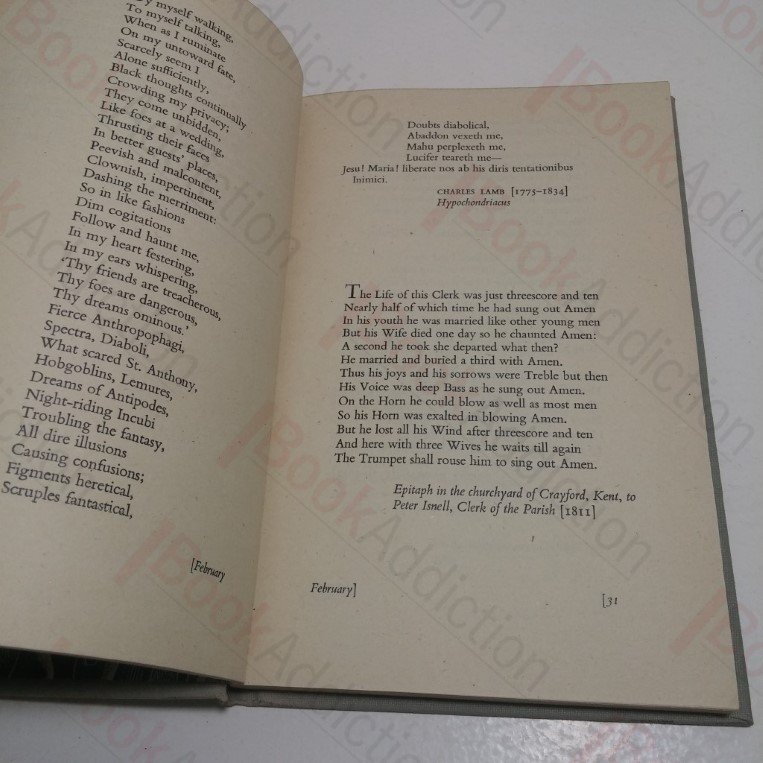 By myself walking,
To myself talking,
When as I ruminate
On my untoward fate,
Scarcely seem I
Alone sufficiently,
Black thoughts continually
Crowding my privacy;
They come unbidden,
Like foes at a wedding,
Thrusting their faces
In better guests' places,
Peevish and malcontent,
Clownish, impertinent,
Dashing the merriment:
So in like fashions
Dim cogitations
Follow and haunt me,
In my heart festering,
In my ears whispering,
'Thy friends are treacherous,
Thy foes are dangerous,
Thy dreams ominous.'
Fierce Anthropophagi,
Spectra, Diaboli,
What scared St. Anthony,
Hobgoblins, Lemures,
Dreams of Antipodes,
Night-riding Incubi
Troubling the fantasy,
All dire illusions
Causing confusions;
Figments heretical,
Scruples fantastical,
[February
Doubts diabolical,
Abaddon vexeth me,
Mahu perplexeth me,
Lucifer teareth me—
Jesu! Maria! liberate nos ab his diris tentationibus
Inimici.
CHARLES LAMB [1775–1834]
Hypochondriacus
The Life of this Clerk was just threescore and ten
Nearly half of which time he had sung out Amen
In his youth he was married like other young men
But his Wife died one day so he chaunted Amen:
A second he took she departed what then?
He married and buried a third with Amen.
Thus his joys and his sorrows were Treble but then
His Voice was deep Bass as he sung out Amen.
On the Horn he could blow as well as most men
So his Horn was exalted in blowing Amen.
But he lost all his Wind after threescore and ten
And here with three Wives he waits till again
The Trumpet shall rouse him to sing out Amen.
Epitaph in the churchyard of Crayford, Kent, to
Peter Isnell, Clerk of the Parish [1811]
February]
[31
BookAddiction